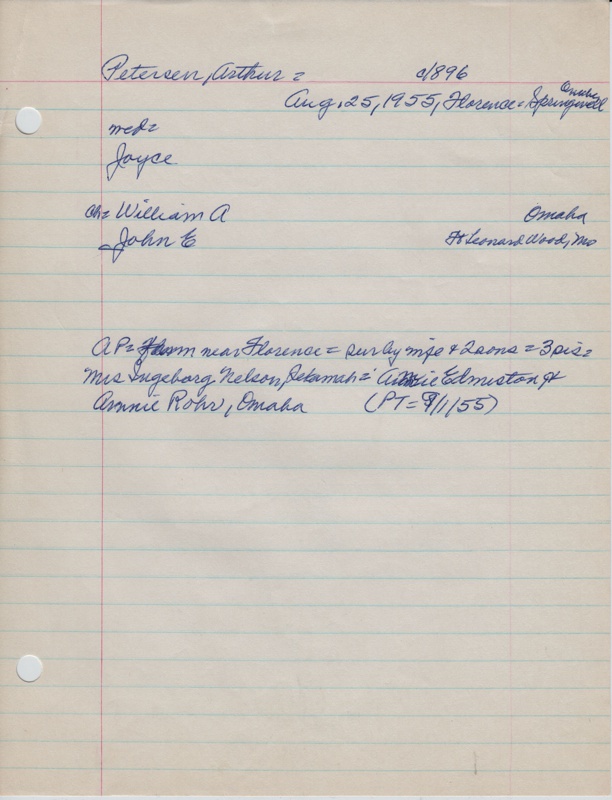 Petersen, Arthur = c/896
Omaha
Aug. 25, 1955, Florence = Springwell
med=
Joyce
Ch= William A Omaha
= John E Ft Leonard Wood, Mo
AP= near Florence = sur by wife & 2 sons = 3 sis=
Mrs Ingeborg Nelson, Tekamah = Edmiston &
Annie Rohr, Omaha (PT= 9/1/55)